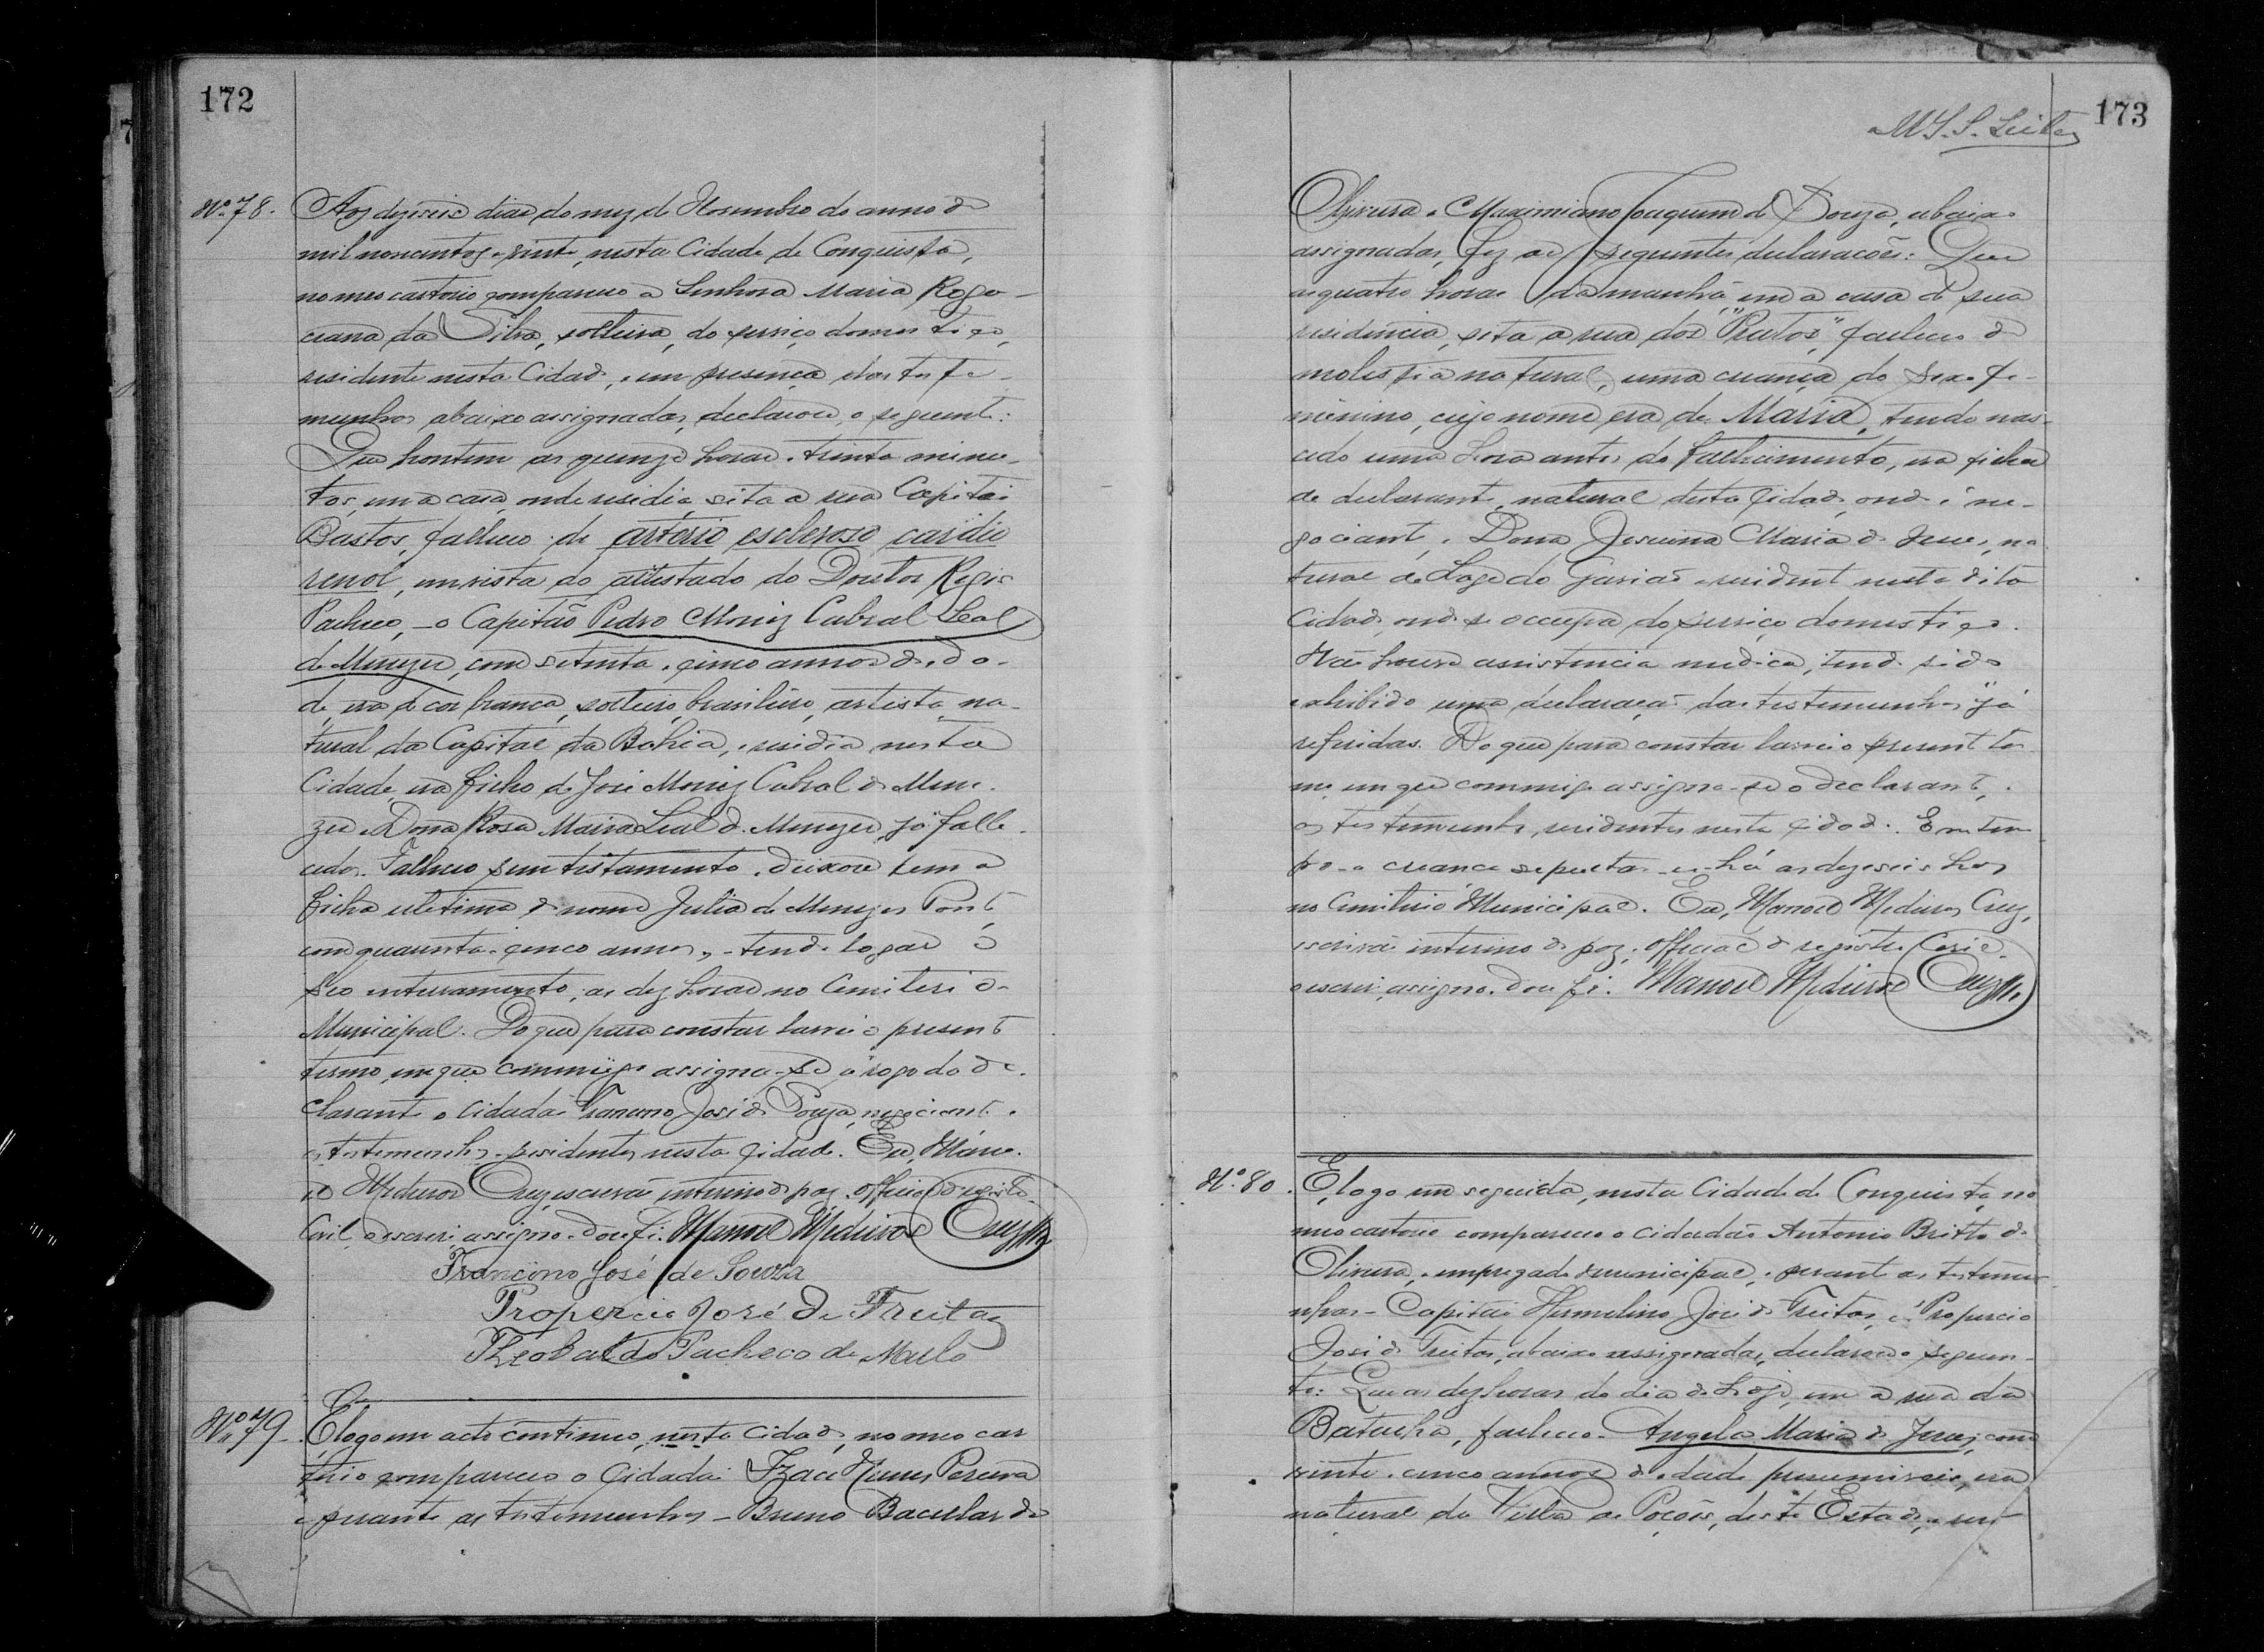 172
Nº 78. Aos dezeseis dias do mez de Novembro do anno de
mil novecentos e vinte, nesta Cidade de Conquista,
no meo cartorio compareceo a Senhora Maria Roga-
ciana da Silva, solteira, do serviço domestico,
residente nesta Cidade, e em presença das teste-
munhas abaixo assignadas, declarou o seguinte:
Que hontem as quinze horas e trinta minu-
tos, em a casa, onde residia, sita a rua Capitão
Bastos, falleceo de arterio escleroso cardio
renal, em vista do attestado do Doutor Regis
Pacheco, - o Capitão Pedro Moniz Cabral Leal
de Menezes, com setenta e cinco annos de eda-
de, era de cor branca, solteiro, brasileiro, artista, na-
tural da Capital da Bahia, e residia nesta
Cidade, era filho de José Moniz Cabral de Mene-
zes e Dona Rosa Maria Leal de Menezes, já falle-
cidos. Falleceo sem testamento e deixou uma
filha de nome Julia de Menezes
com quarenta e cinco annos, - tendo logar o
seo enterramento, as dez horas no Cemiterio
Municipal. Do que para constar lavrei o presente
termo, em que commigo assigna-se a rogo da de-
clarante o Cidadão Francino José de Souza, negociante e
as testemunhas residentes nesta Cidade. Eu, Mano-
el Medeiros Cruz, escrivão interino de paz e official do registro
Civil, o escrevi, assigno e dou fé. Manoel Medeiros Cruz
Francino José de Souza
Propercio José de Freitas
Theobaldo Pacheco de Mello
Nº 79. E, logo em acto continuo, nesta Cidade, no meo car-
torio compareceo o Cidadão Izac Nunes Pereira
e perante as testemunhas - Bruno Bacellar de
173
Oliveira e Maximiano Joaquim de Souza, abaixo
assignadas, fez as seguintes declarações: Que
as quatro horas da manhã em a casa de sua
residencia, sita a rua dos "Prates", falleceo de
molestia natural, uma creança do sexo fe-
minino, cujo nome era de Maria, tendo nas-
cido uma hora antes do fallecimento, era filha
do declarante, natural desta Cidade, onde é ne-
gociante, e Dona Jesuina Maria de Jesus, na-
tural de Lage do e residente nesta dita
Cidade, onde se occupa do serviço domestico.
Não houve assistencia medica, tendo sido
exhibido uma declaração das testemunhas já
referidas. Do que para constar lavrei o presente ter-
mo, em que commigo assigna-se o declarante, e
as testemunhas, residentes nesta Cidade. Em tem-
po - a creança sepultar-se-há as dezeseis horas
no Cemiterio Municipal. Eu, Manoel Medeiros Cruz,
escrivão interino de paz e official do registro Civil
o escrevi, assigno e dou fé. Manoel Medeiros Cruz
Nº 80. E, logo em seguida, nesta Cidade de Conquista, no
meo cartorio compareceo o Cidadão Antonio Britto de
Oliveira, empregado municipal, e perante as testemu-
nhas - Capitão Hermelino José de Freitas, e Propercio
José de Freitas, abaixo assignadas, declarou o seguin-
te: Que as dez horas do dia de hoje, em a rua da
Batalha, falleceo Angela Maria de Jesus, com
vinte e cinco annos de edade presumiveis, era
natural da Villa de Poções, deste Estado, e